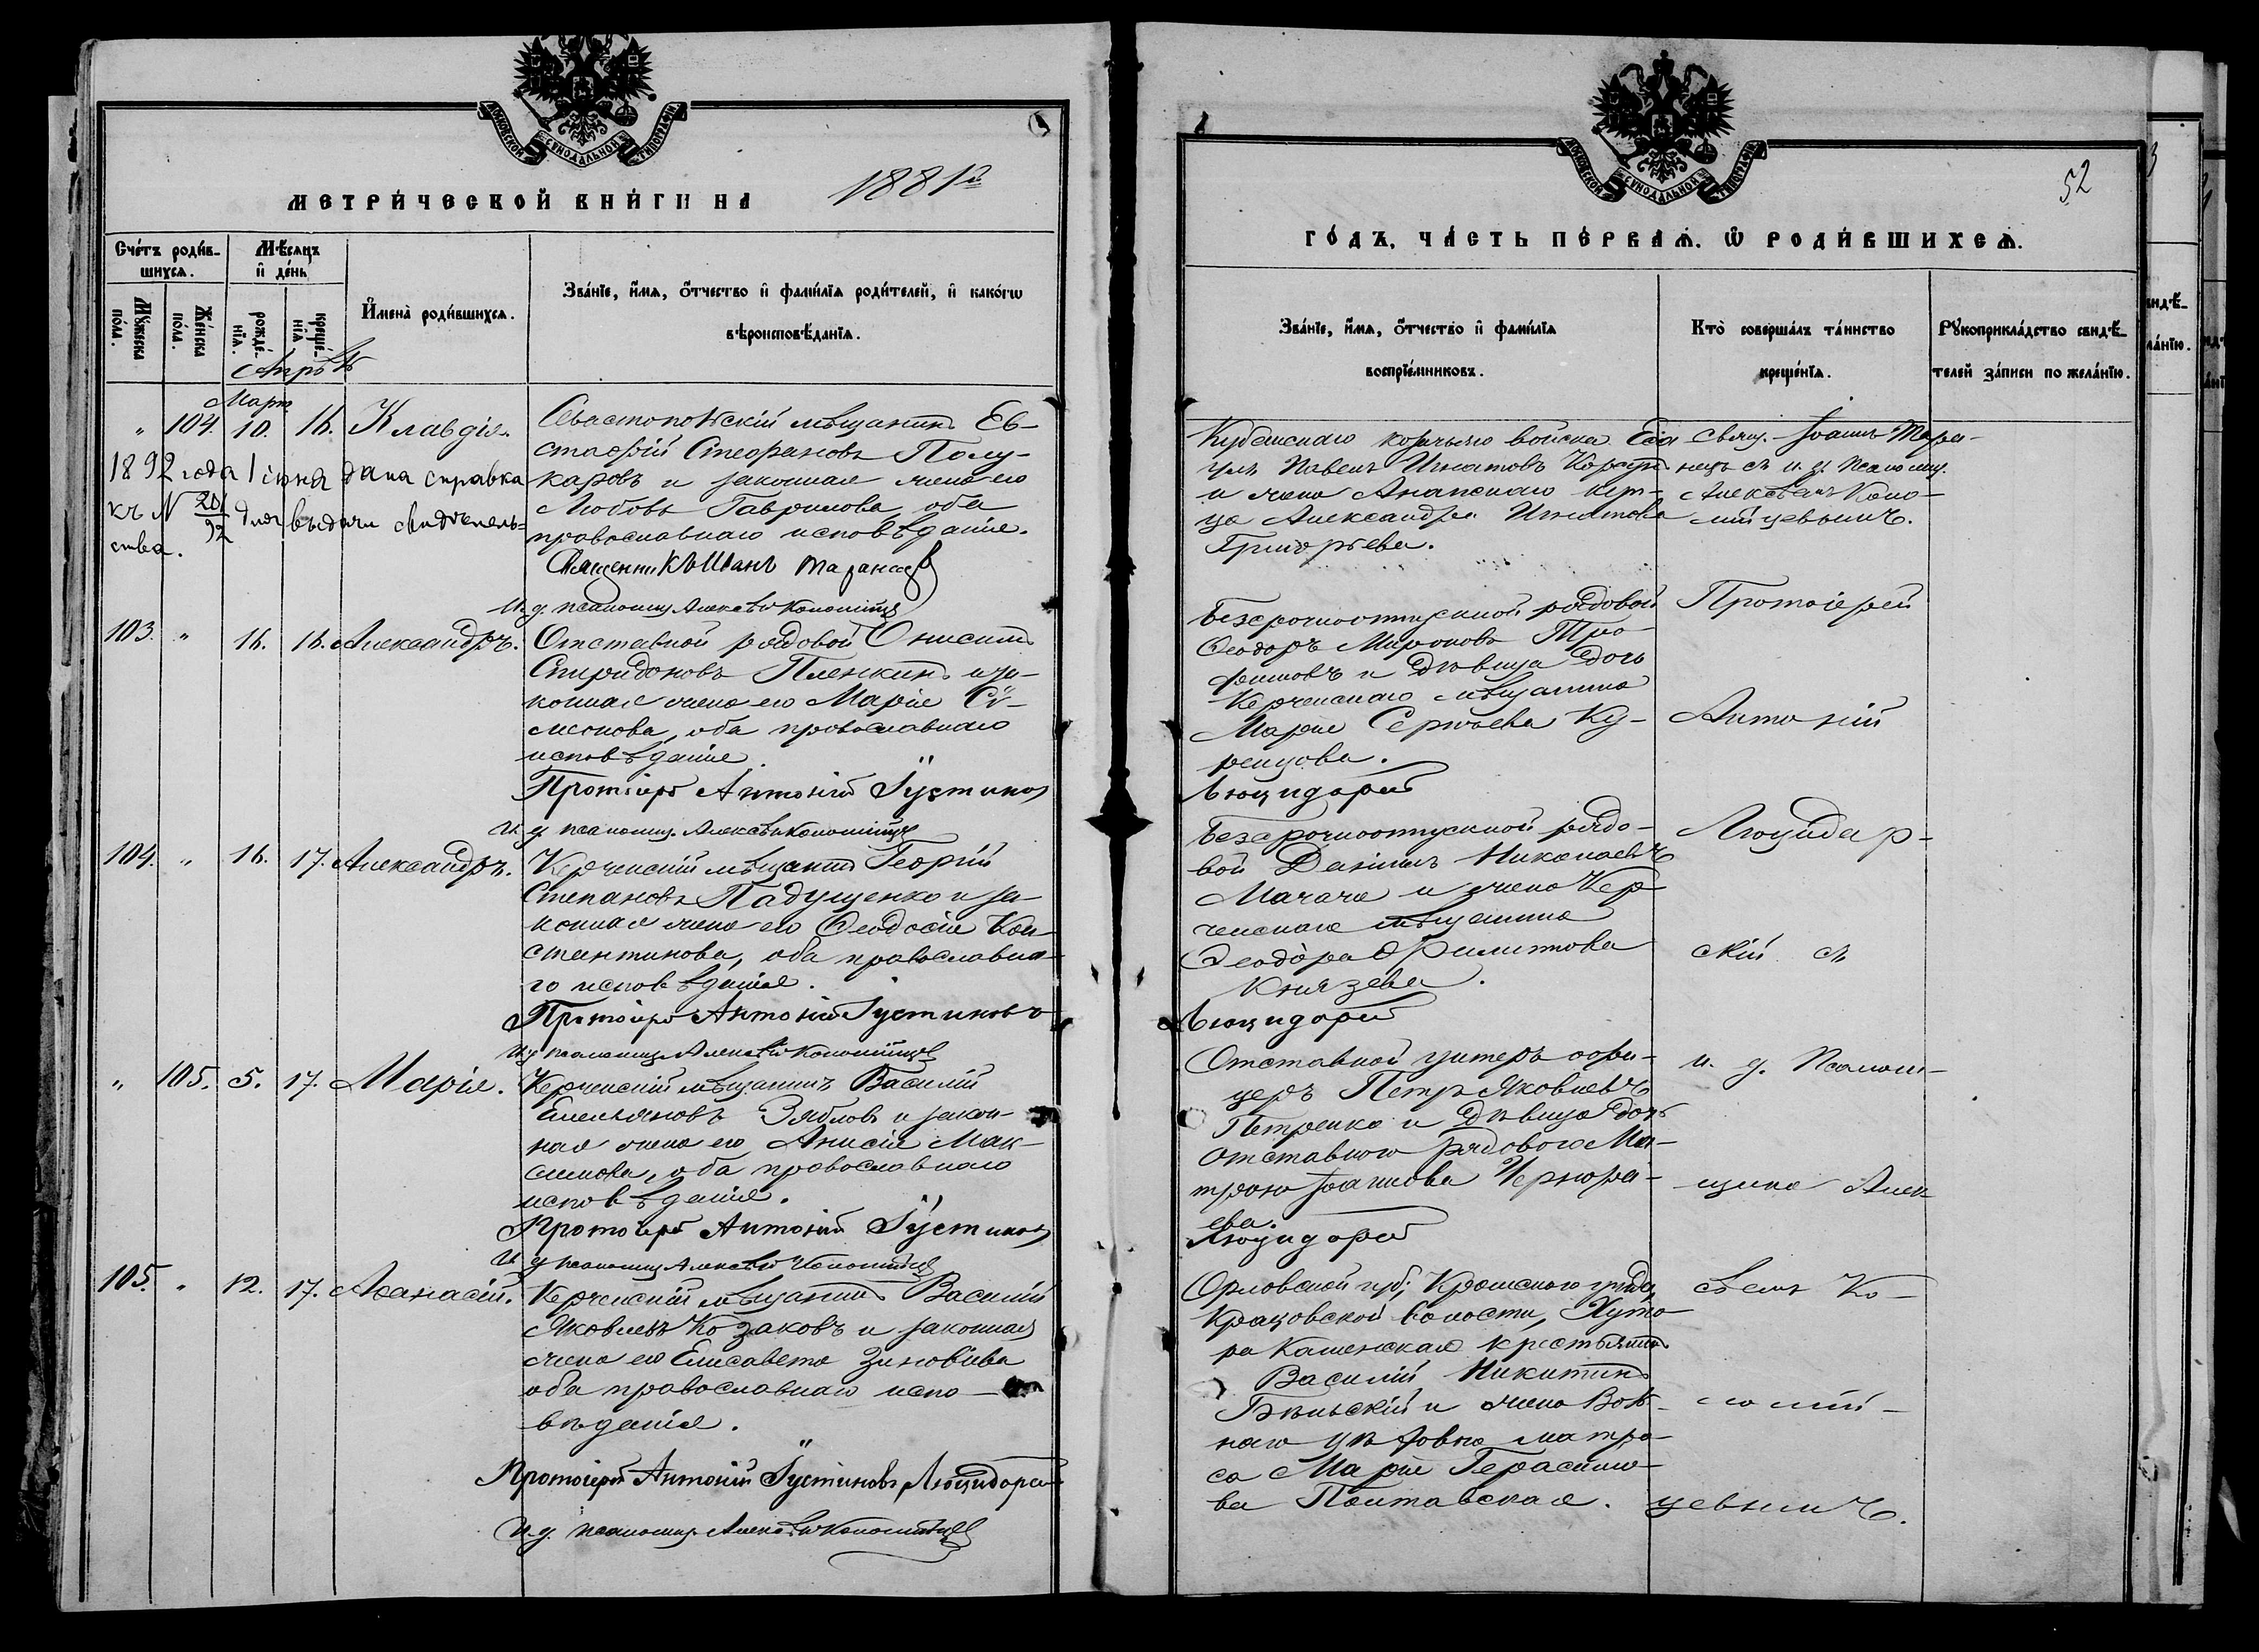 МОСКОВСКОЙ СѴНОДАЛЬНОЙ ТИПОГРАФІИ
МЕТРИЧЕСКОЙ КНИГИ НА 1881й
Счетъ родив-
шихся.
Мужеска
пола.
Женска
пола.
Мѣсяцъ
и день
рожде-
нія.
креще-
нія
Имена родившихся.
Званіе, имя, отчество и фамилія родителей, и какогѡ
вѣроисповѣданія.
Апрѣль
Март
" 104. 10. 16. Клавдія.
Севастопольскій мѣщанинъ Ев-
стафій Стефановъ Полу-
каровъ и законная жена его
Любовь Гаврилова, оба
православнаго исповѣданія.
1892 года 1 іюня дана справка
къ № 201/92 для выдачи свидѣтель-
ства.
Священникъ Іоаннъ Таранецъ
И. д. псаломщ. Алексѣй Коломійце
103. " 16. 16. Александръ.
Отставной рядовой Онисимъ
Спиридоновъ Пленкинъ и за-
конная жена его Марія Сѵ-
меонова, оба православнаго
исповѣданія.
Протоіерей Антоній Іустиновъ
И. д. псаломщ. Алексѣй Коломійце
104. " 16. 17. Александръ.
Керченскій мѣщанинъ Георгій
Степановъ Падущенко и за-
конная жена его Ѳеодосія Кон-
стантинова, оба православна-
го исповѣданія.
Протоіерей Антоній Іустиновъ
И. д. псаломщ. Алексѣй Коломійце
" 105. 5. 17. Марія.
Керченскій мѣщанинъ Василій
Емельяновъ Зябловъ и закон-
ная жена его Анисія Мак-
симова, оба православнаго
исповѣданія.
Протоіерей Антоній Іустиновъ
И. д. псаломщ. Алексѣй Коломійце
105. " 12. 17. Аѳанасій.
Керченскій мѣщанинъ Василій
Яковлевъ Козаковъ и законная
жена его Елисавета Зиновіева
оба православнаго испо-
вѣданія.
Протоіерей Антоній Іустиновъ Люцидарскій
И. д. псаломщ. Алексѣй Коломійце
МОСКОВСКОЙ СѴНОДАЛЬНОЙ ТИПОГРАФІИ
52
ГОДЪ, ЧАСТЬ ПЕРВАЯ, Ѡ РОДИВШИХСЯ.
Званіе, имя, отчество и фамилія
воспріемниковъ.
Кто совершалъ таинство
крещенія.
Рукоприкладство свидѣ-
телей записи по желанію.
Кубанскаго козачьяго войска Еса
улъ Павелъ Игнатовъ
и жена Анапскаго куп-
ца Александра Игнатова
Григорьева.
Свящ. Іоаннъ Тара-
нецъ съ и. д. псаломщ.
Алексѣемъ Коло-
мійцевымъ.
Безсрочноотпускной рядовой
Ѳеодоръ Мироновъ Тро-
фимовъ и дѣвица дочь
Керченскаго мѣщанина
Марія Сергѣева Ку-
репцова.
Люцидарскій
Протоіерей
Антоній
Безсрочноотпускной рядо-
вой Даніилъ Николаевъ
Магача и жена Кер-
ченскаго мѣщанина
Ѳеодора Филиппова
Князева.
Люцидарскій
Люцидар-
скій съ
Отставной унтеръ офи-
церъ Петръ Яковлевъ
Петренко и дѣвица дочь
отставного рядового Мат-
трона Іоаннова
ева.
Люцидарскій
и. д. псалом-
щика Алек
Орловской губ. Кромскаго уѣзда,
волости, Хуто-
ра Каменскаго крестьянинъ
Василій Никитинъ
Бѣльскій и жена Воль-
наго матро-
са Марія Герасимо-
ва Полтавская.
сѣемъ Ко-
ломій-
цевымъ.